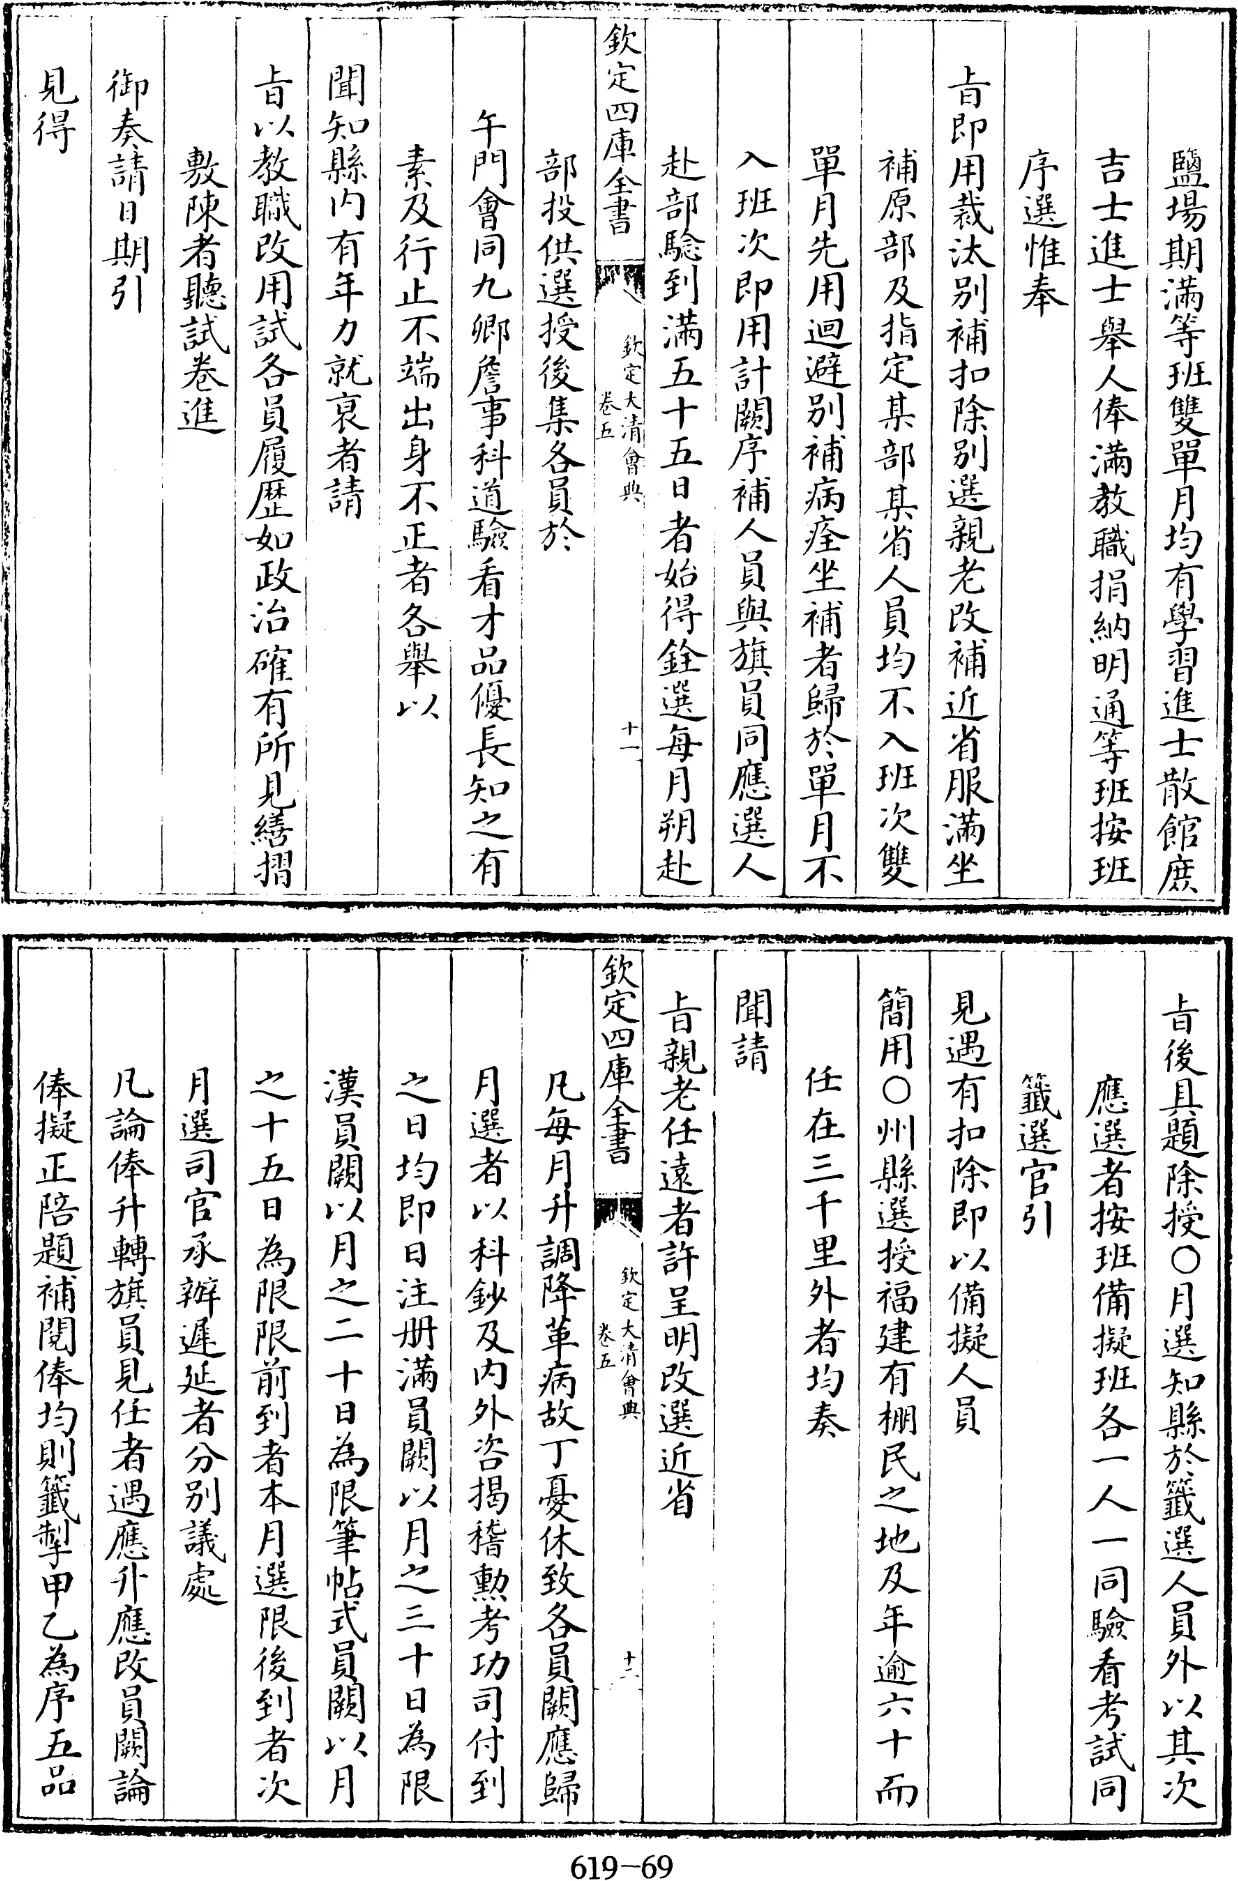 鹽場期滿等班雙單月均有學習進士散館庶
吉士進士舉人俸滿教職捐納明通等班按班
序選惟奉
旨即用裁汰別補扣除別選親老改補近省服滿坐
補原部及指定某部某省人員均不入班次雙
單月先用迴避別補病痊坐補者歸於單月不
入班次即用計闕序補人員與旗員同應選人
赴部驗到滿五十五日者始得銓選每月朔赴
欽定四庫全書
欽定大清會典
卷五
十一
部投供選授後集各員於
午門會同九卿詹事科道驗看才品優長知之有
素及行止不端出身不正者各舉以
聞知縣內有年力就衰者請
旨以教職改用試各員履歷如政治確有所見繕摺
敷陳者聽試卷進
御奏請日期引
見得
旨後具題除授〇月選知縣於籤選人員外以其次
應選者按班備擬班各一人一同驗看考試同
籤選官引
見遇有扣除即以備擬人員
簡用〇州縣選授福建有棚民之地及年逾六十而
任在三千里外者均奏
聞請
旨親老任遠者許呈明改選近省
欽定四庫全書
欽定大清會典
卷五
十二
凡每月升調降革病故丁憂休致各員闕應歸
月選者以科鈔及內外咨揭稽勳考功司付到
之日均即日注冊滿員闕以月之三十日為限
漢員闕以月之二十日為限筆帖式員闕以月
之十五日為限限前到者本月選限後到者次
月選司官承辦遲延者分別議處
凡論俸升轉旗員見任者遇應升應改員闕論
俸擬正陪題補閱俸均則籤掣甲乙為序五品
619-69